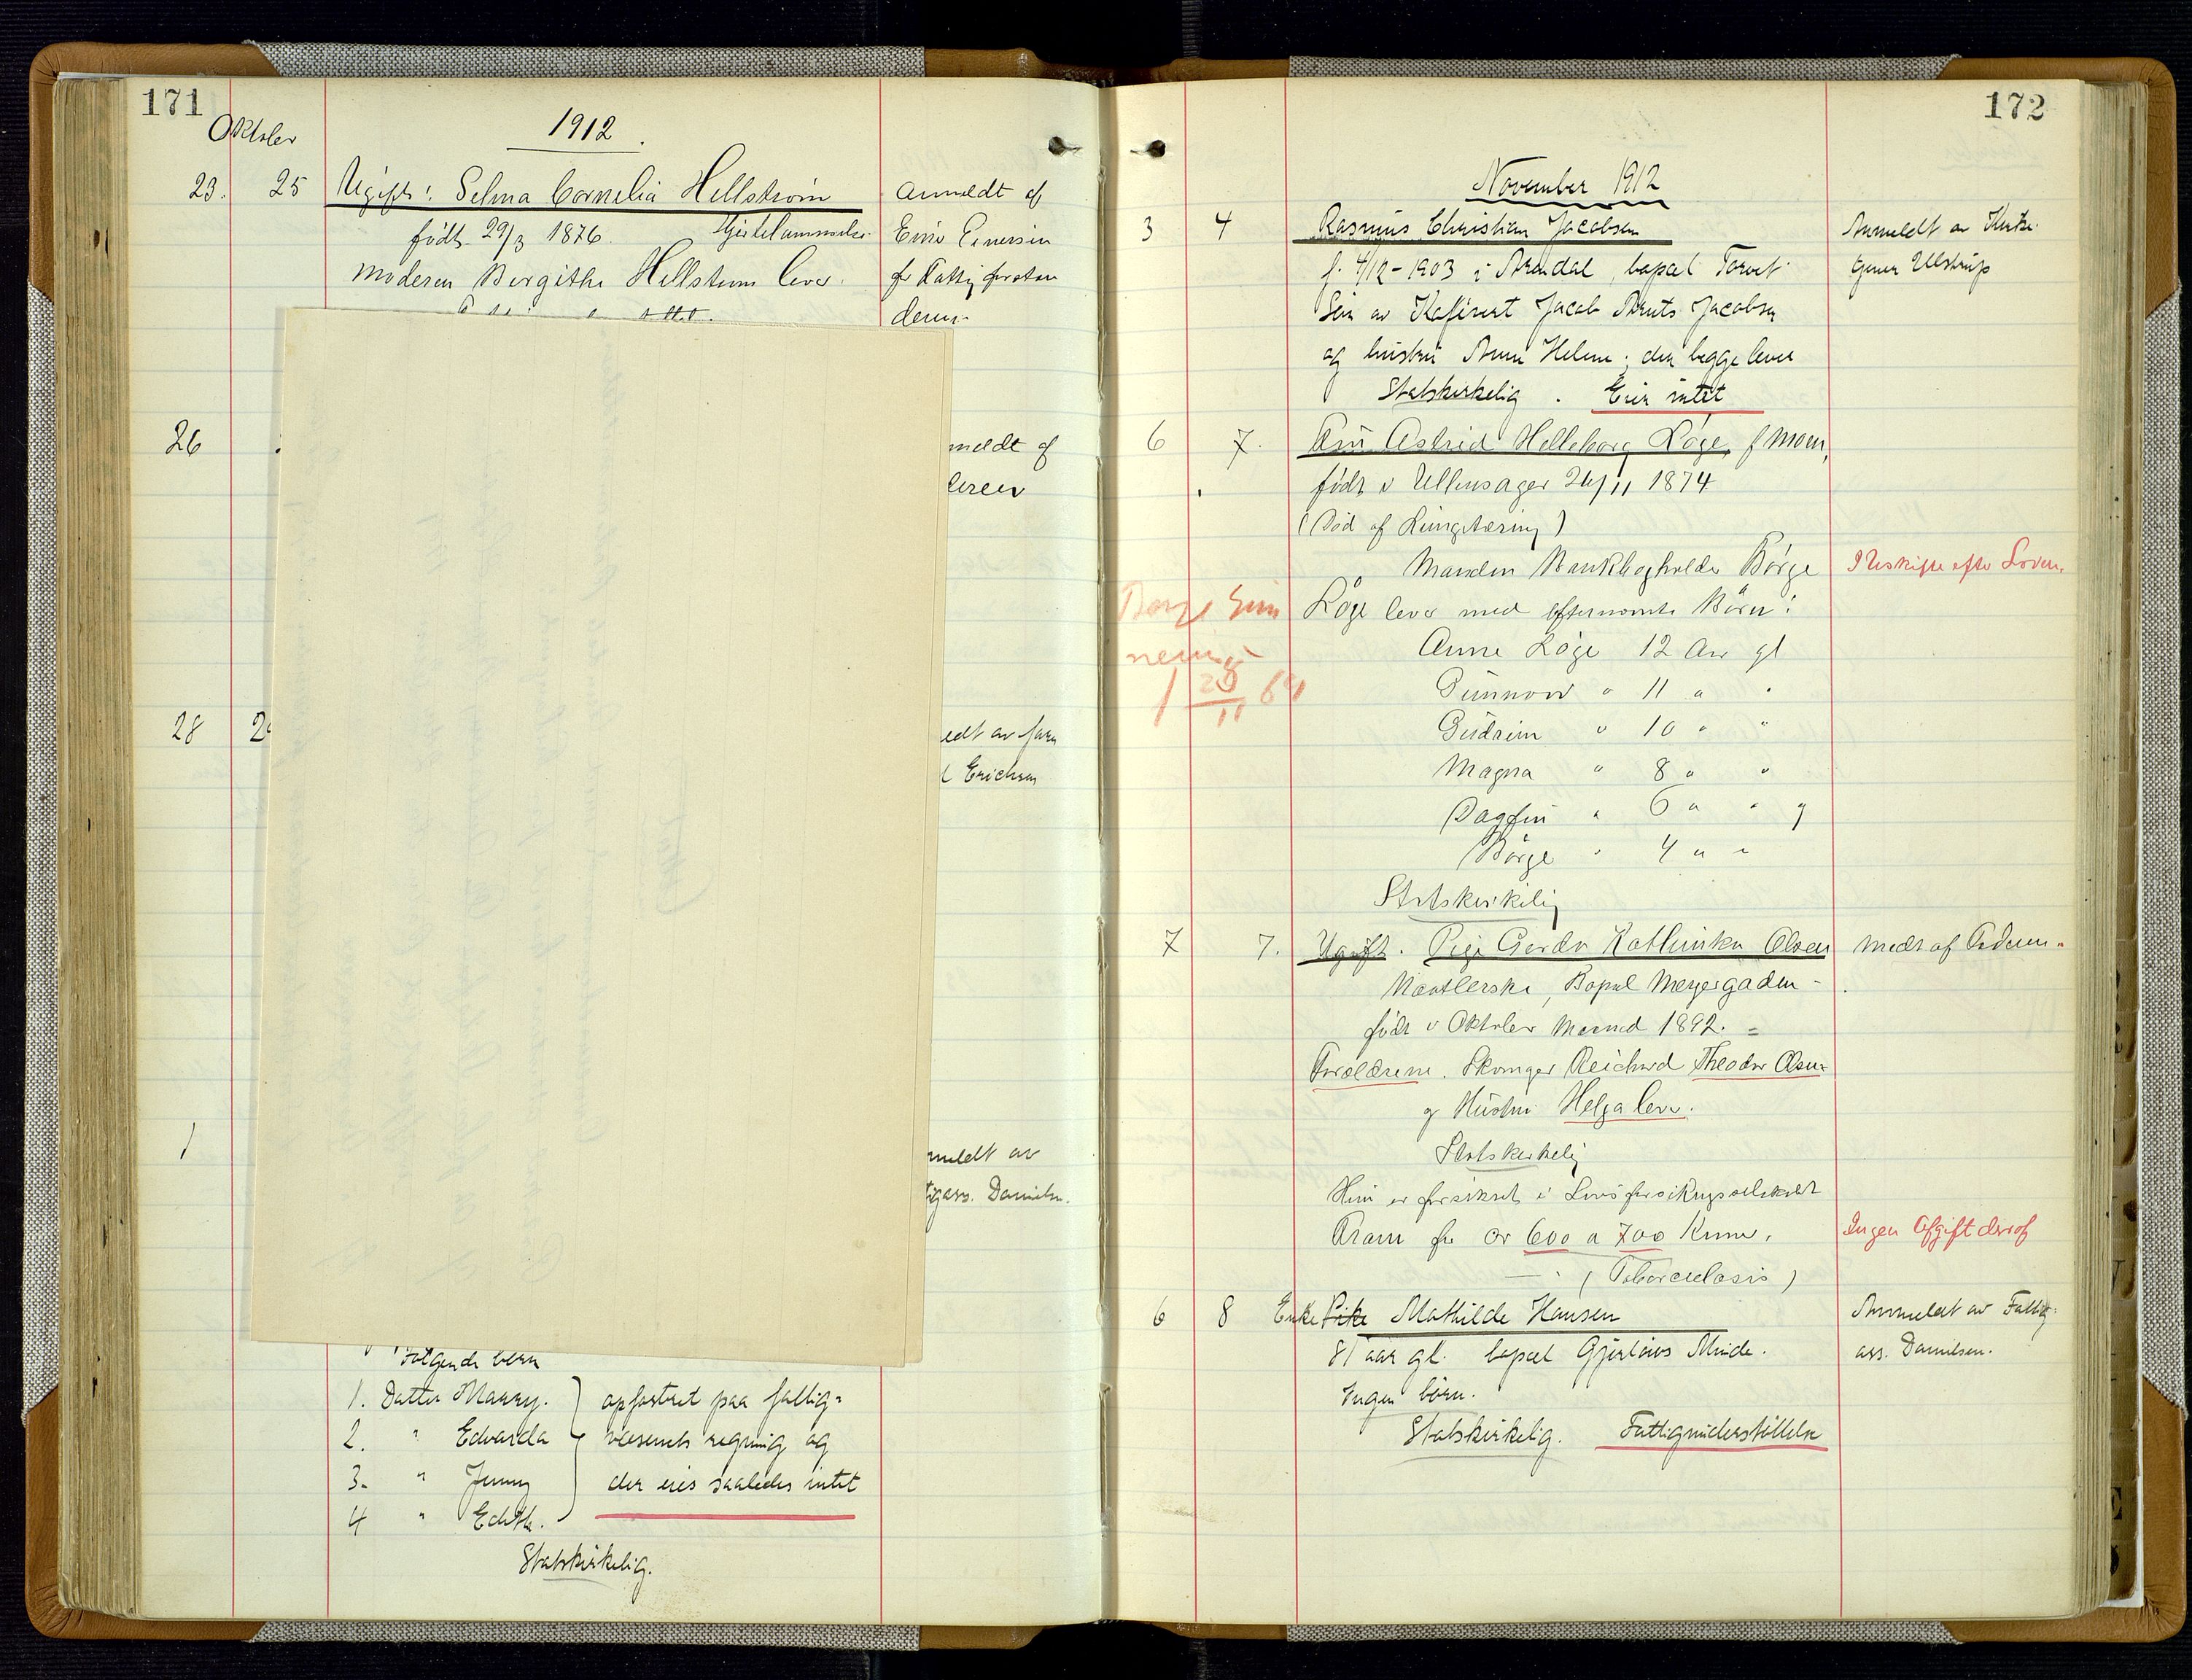 171
Oktober
1912
23. 25 Ugift: Selma Cornelia Hellström
født 29/3 1876. Hjertelammelse
moderen Bergithe Hellstrøm lever.
Anmeldt af
Einersen
for Fattigforstan
deren
26
meldt af
28
edt av faren
Erichsen
1
meldt av
tigass. Danielsen.
Følgende børn
1. Datter Maary. opfostret paa fattig-
2. " Edvarda væsenets regning og
3. " Jenny der eies saaledes intet
4 " Edith.
Statskirkelig.
172
November 1912
3 4 Rasmus Christian Jacobsen
f. 4/12-1903 i Arendal, bopæl Torvet
Søn av Kafévert Jacob Jacobsen
og hustru Anne Helene; der begge lever
Statskirkelig. Eier intet
Anmeldt av
Ellstrup
6 7. Fru Astrid Helleborg Løge, f Moen,
født i Ullensager 24/11 1874
(Død af Lungetæring)
Manden Bankbogholder Børge
Løge lever med efternævnte Børn:
Anne Løge 12 Aar gl
Gunnvor " 11 " "
Gudrun " 10 " "
Magna " 8 " "
Dagfin " 6 " " og
Børge " 4 " "
Statskirkelig
Uskifte efter Loven.
Børge
28/11 64
7 7. Ugift. Pige Gerda Kathinka Olsen
Bopæl Meyergaden -
født i Oktober Maaned 1892. =
Forældrene. Skomager Reichard Theodor Olsen
og Hustru Helga lever.
Statskirkelig
Hun er forsikret i Livsforsikringsselskabet
Fram for cr 600 a 700 Kroner.
(Toberculosis)
Meldt af Faderen.
Ingen Afgift derof
6 8 Enke Pike Mathilde Hansen
81 aar gl. bopæl Gjerløvs Minde.
Ingen børn.
Statskirkelig. Fattigunderstøttelse
Anmeldt av Fattig-
ass. Danielsen.